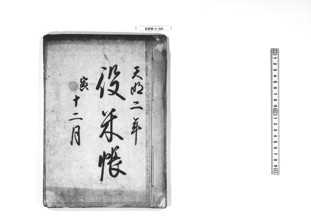 天明二年
役米帳
寅十二月